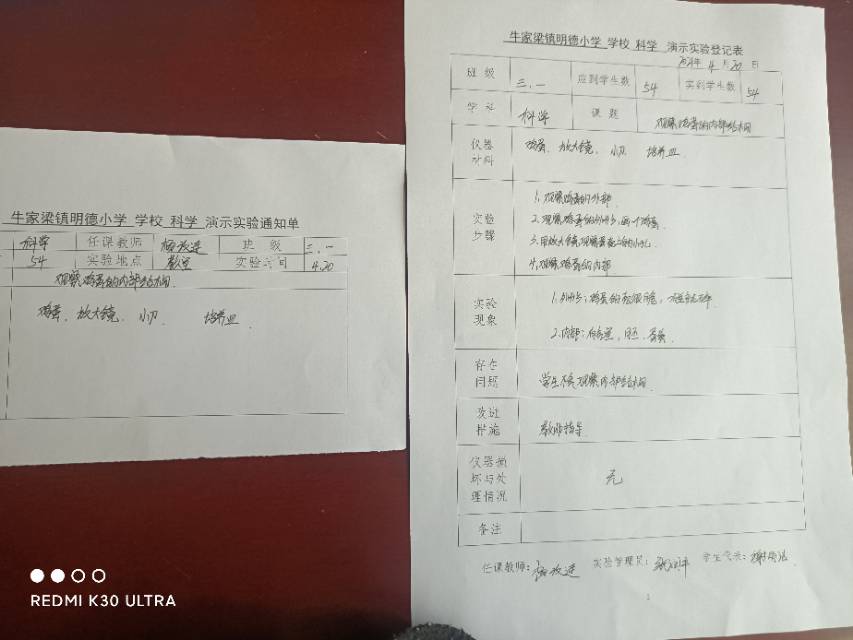 牛家梁镇明德小学 学校 科学 演示实验通知单
科学 任课教师 杨改进 班 级 三.一
54 实验地点 教室 实验时间 4.20
观察鸡蛋的内部结构
鸡蛋、放大镜、小刀 培养皿
牛家梁镇明德小学 学校 科学 演示实验登记表
年 4 月 20 日
班 级 三.一 应到学生数 54 实到学生数 54
学 科 科学 课 题 观察鸡蛋的内部结构
仪器 鸡蛋、放大镜、小刀 培养皿
材料
1.观察鸡蛋的外部
实验 2.观察鸡蛋的外形,画一个鸡蛋
步骤 3.用放大镜观察蛋壳上的小孔
4.观察鸡蛋的内部
实验 1.外形:鸡蛋的
现象 2.内部:
存在
问题 学生不会观察内部结构
改进
措施 教师指导
仪器损
坏与处 无
理情况
备注
任课教师:杨改进 实验管理员: 学生代表:
1